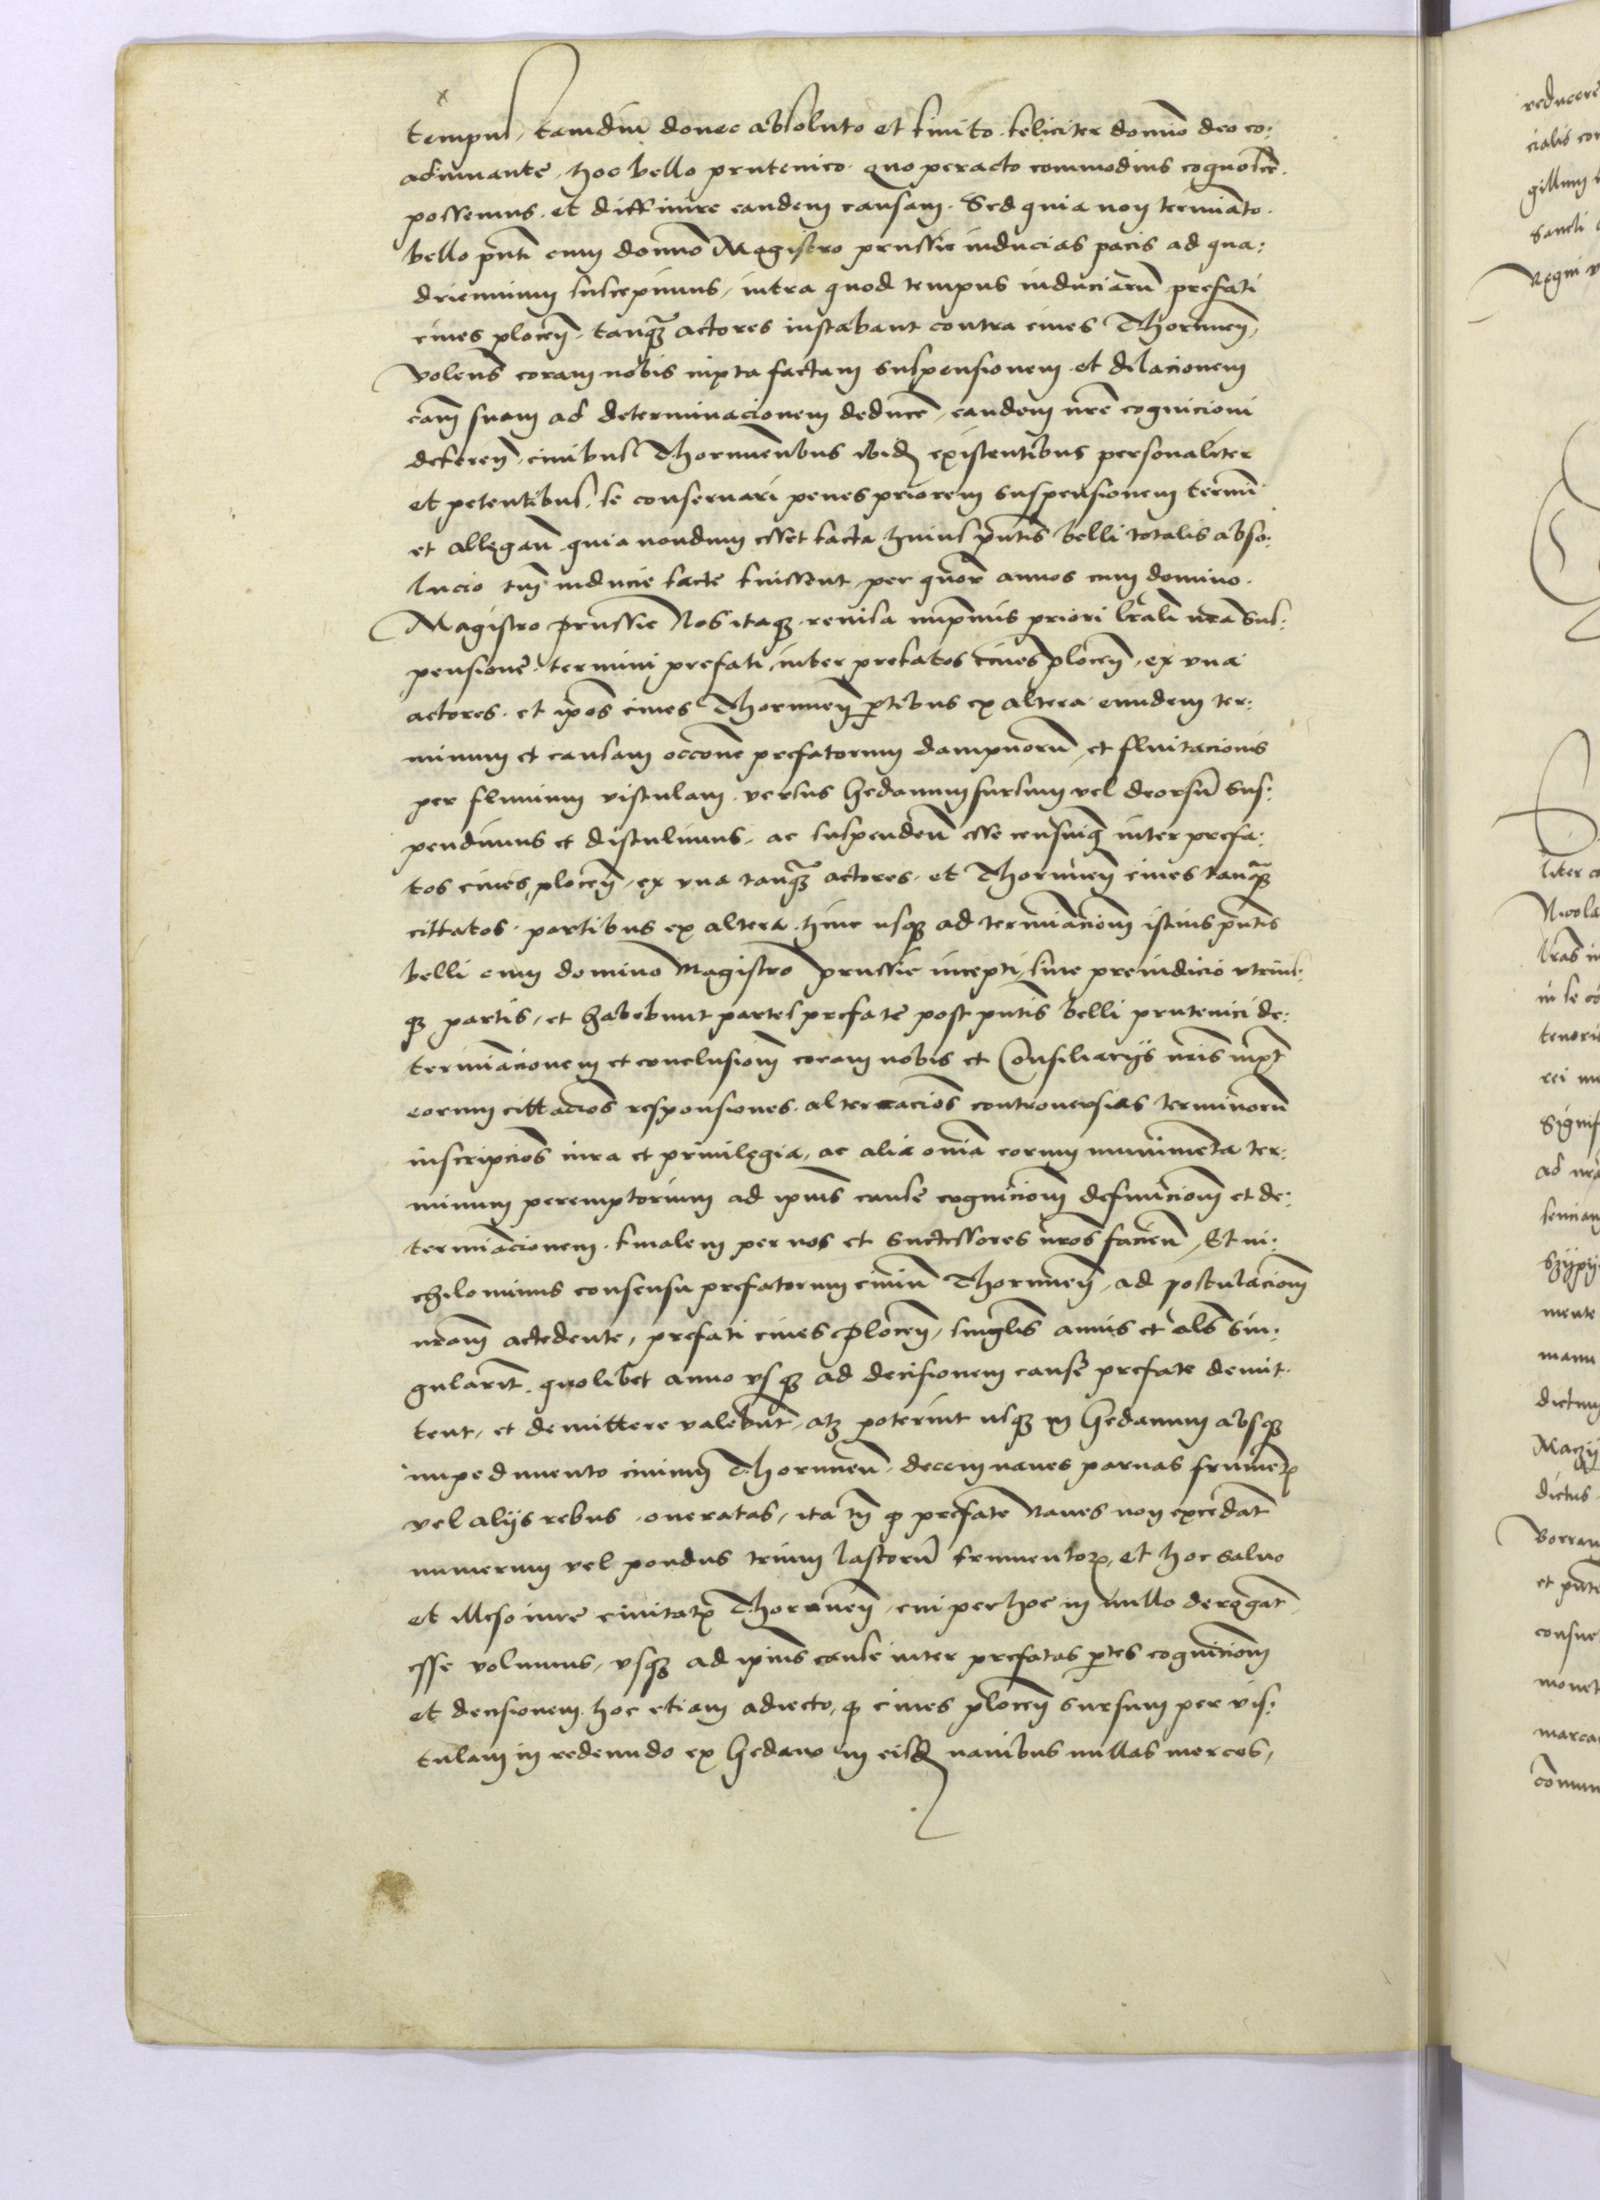 tempus, tamdiu donec absoluto et finito feliciter domino deo co:
adiuuante, hoc bello prutenico. quo peracto commodius cognoscere
possemus. et diffinire eandem causam. Sed quia non terminato.
bello pnti cum domino Magistro prussie inducias pacis ad qua:
driennium suscepimus, intra quod tempus induciarū prefati
ciues plocen̄. tanq̄ȝ actores instabant contra ciues Thorunen̄,
Volens coram nobis iuxta factam suspensionem et dilacionem
cām suam ad determinacionem deducē, eandem nrē cognicioni
deferen̄. ciuibus Thorunen̄bus ibidē existentibus personaliter
et petentibus. se conseruari penes priorem suspensionem termi
et allegan̄. quia nondum esset facta huius pntis belli totalis abso:
lucio tm̄ inducie facte fuissent, per quor annos cum domino.
Magistro Prussie Nos itaqȝ. reuisa inprimis priori lrali nra sus:
pensione. termini prefati, inter prefatos ciues plocen̄. ex vna
actores. et ipos ciues Thorunen̄ ptibus ex altera eundem ter:
minum et causam occone prefatorum dampnorū, et fluitacionis
per fluuium vistulam. versus Gedanum sursum vel deorsū sus:
pendimus et distulimus. ac suspenden̄ esse censuimꝰ inter prefa:
tos ciues plocen̄, ex vna tanq̄ȝ actores. et Thorunen̄ ciues tanq̄ȝ
cittatos. partibus ex altera. hinc usqȝ ad terminacionem istius pntis
belli cum domino Magistro prussie incepti, sine preiudicio vtrius:
qȝ partis, et habebunt partes prefate post pntis belli prutenici de:
terminacionem et conclusionem coram nobis et Consiliarijs nris iuxt
eorum cittacios responsiones. altercacios controuersias terminorū
inscripcios iura et priuilegia, ac alia omia eorum munimenta ter:
minum peremptorium ad ipius cause cognicionem definicionem et de:
terminacionem. finalem per nos et successores nros facien̄, Et ni:
chilominus consensu prefatorum ciuiū Thorunen̄, ad postulacionem
nram accedente, prefati ciues Plocen̄, singlis annis et als sin:
gularit̄. quolibet anno vsqȝ ad decisionem cause prefate demit.
tent, et demittere valebunt, atȝ poterint usqȝ in Gedanum absqȝ
impedimento ciuium Thorunen̄. decem naues paruas frumen̄t
vel alijs rebus. oneratas, ita tn̄ ꝙ prefate Naues non excedāt
numerum vel pondus trium lastorū frumentoꝝ, et hoc saluo
et illeso iure ciuitatꝭ Thorunen̄, cui per hoc in nullo derogat̄
esse volumus, vsqȝ ad ipius cause inter prefatas ptes cognicionem
et decisionem. hoc etiam adiecto, ꝙ ciues plocen̄ sursum per vis:
tulam in redeundo ex Gedano in eisdē nauibus nullas merces,